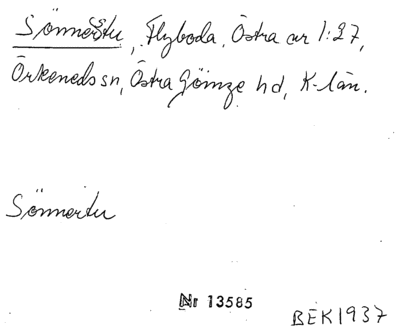 Sönnerstu, Flyboda, Östra ar 1:27,
Örkeneds sn, Östra Göinge hd, K-län.
Sönnertu
Nr 13585
BEK1937